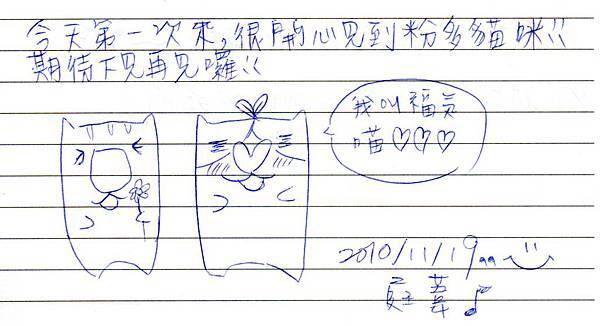 今天第一次來,很開心見到粉多貓咪!!
期待下見再見囉!!
我叫福員
喵♡♡♡
2010/11/19
庭葦